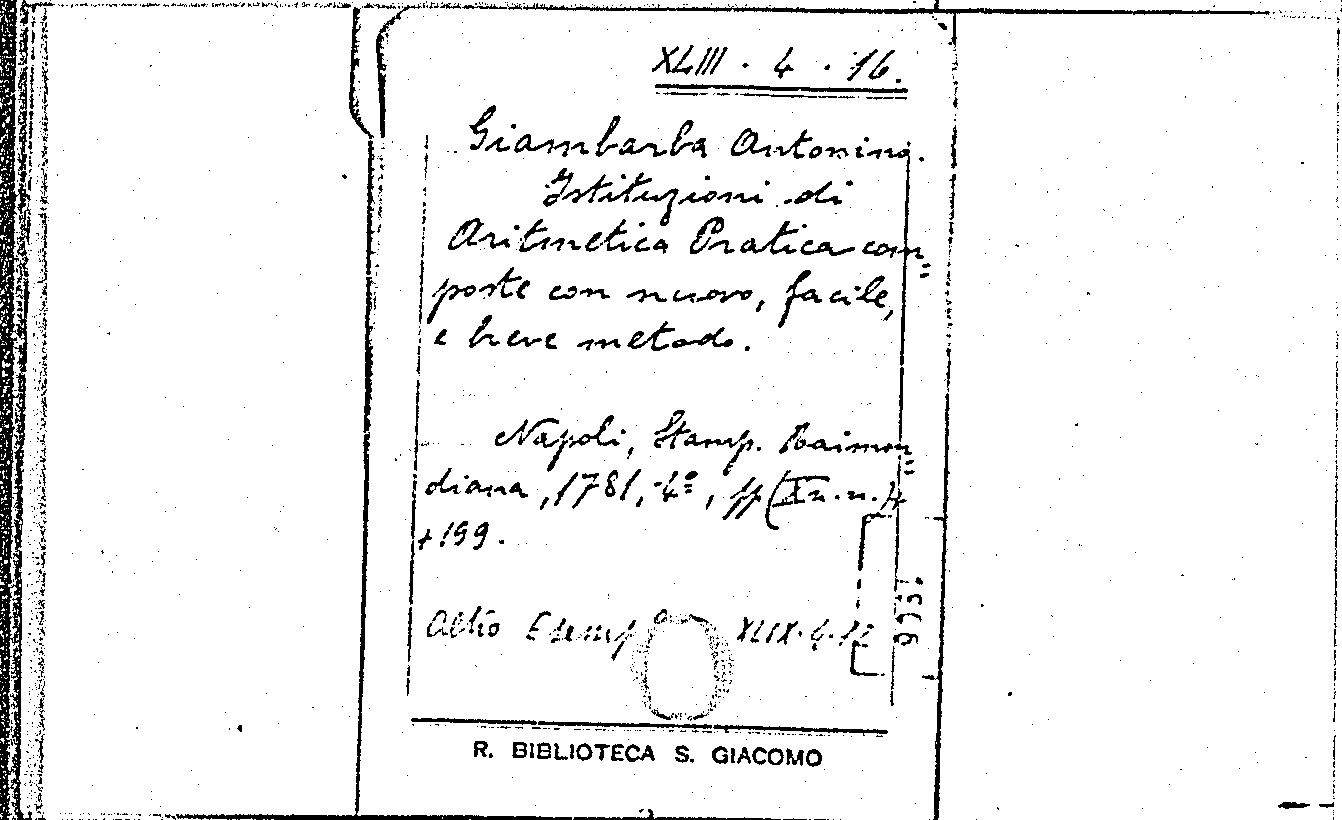 XLIII. 4. 16.
Giambarba Antonino.
Istituzioni di
Aritmetica Pratica com=
poste con nuovo, facile,
e breve metodo.
Napoli, Stamp. Raimon=
diana, 1781, 4º, pp (X n.n.)+
+199.
Altro Esemp XLIX.4.12
R. BIBLIOTECA S. GIACOMO